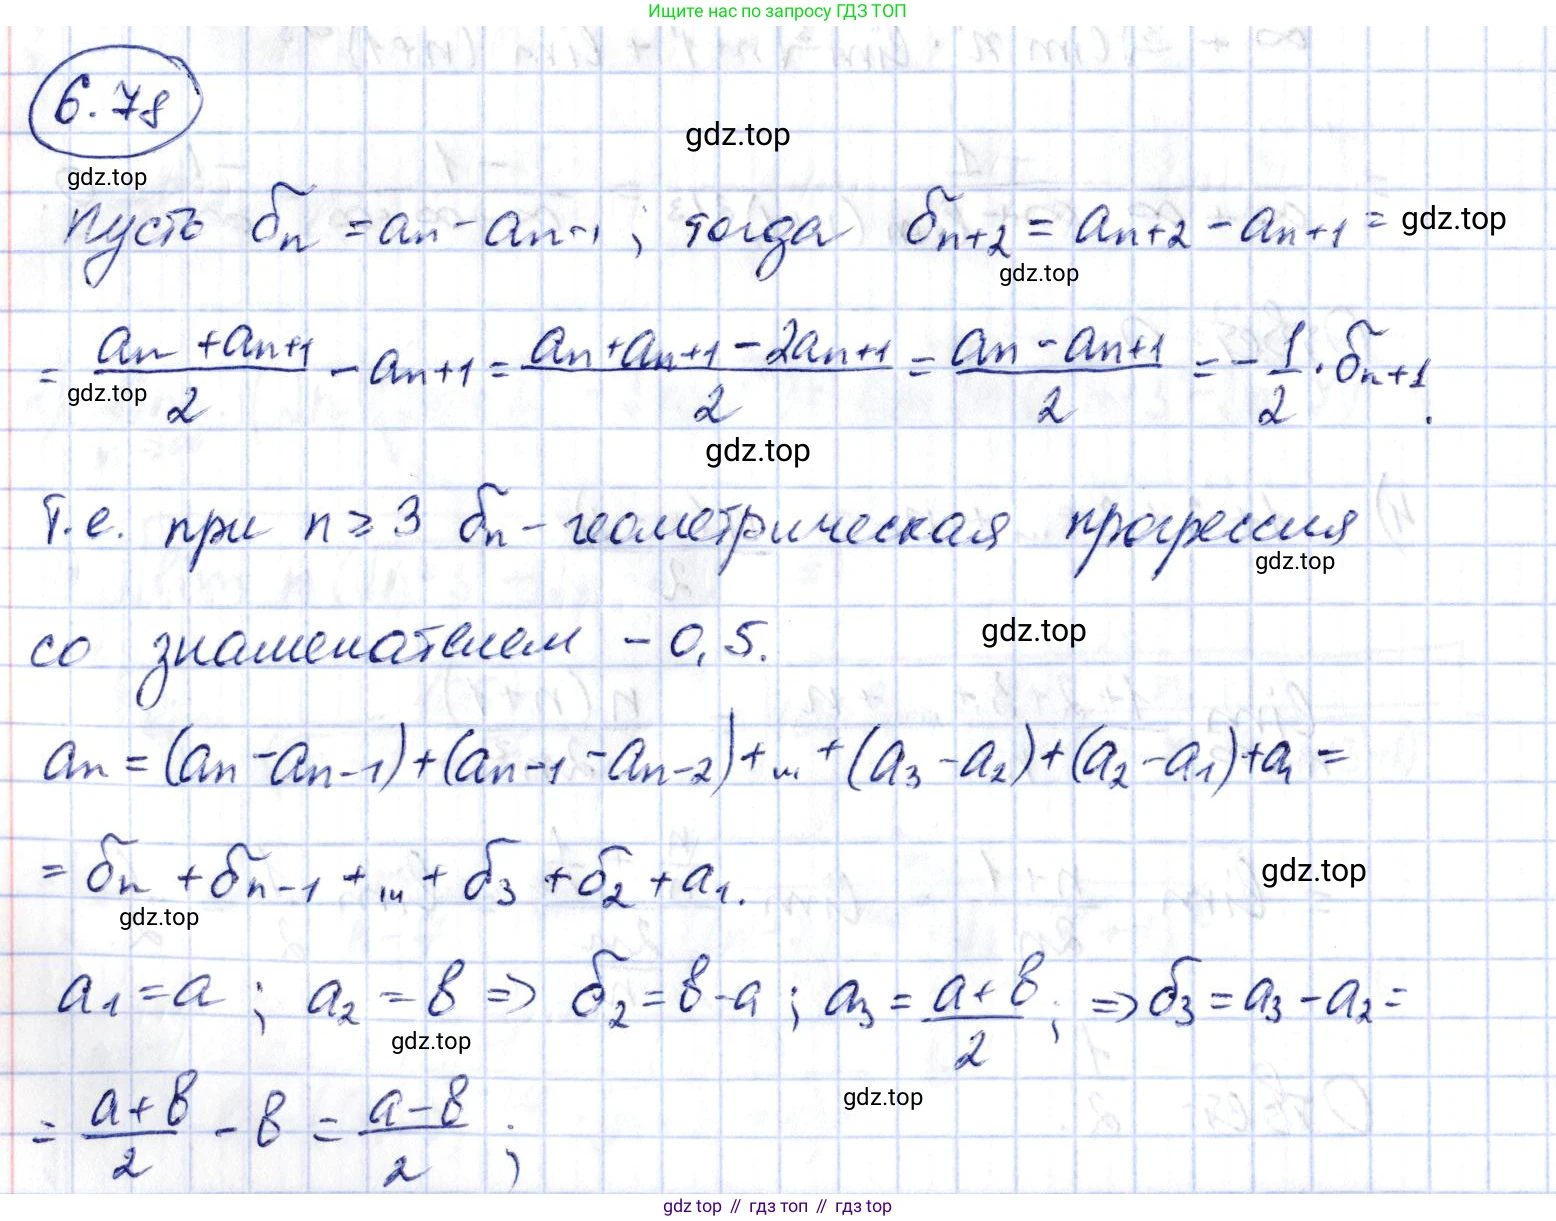 Ищите нас по запросу ГДЗ ТОП
6.78
gdz.top
gdz.top
пусть бn = an - an-1 ; тогда бn+2 = an+2 - an+1 = gdz.top
gdz.top
= (an + an+1)/2 - an+1 = (an + an+1 - 2an+1)/2 = (an - an+1)/2 = -1/2 · бn+1.
gdz.top
gdz.top
т.е. при n ≥ 3 бn - геометрическая прогрессия
gdz.top
со знаменателем -0,5.
gdz.top
an = (an - an-1) + (an-1 - an-2) + ... + (a3 - a2) + (a2 - a1) + a1 =
= бn + бn-1 + ... + б3 + б2 + a1.
gdz.top
gdz.top
a1 = a ; a2 = b => б2 = b - a ; a3 = (a + b)/2 ; => б3 = a3 - a2 =
gdz.top
gdz.top
= (a + b)/2 - b = (a - b)/2 ;
gdz.top // гдз топ // гдз top